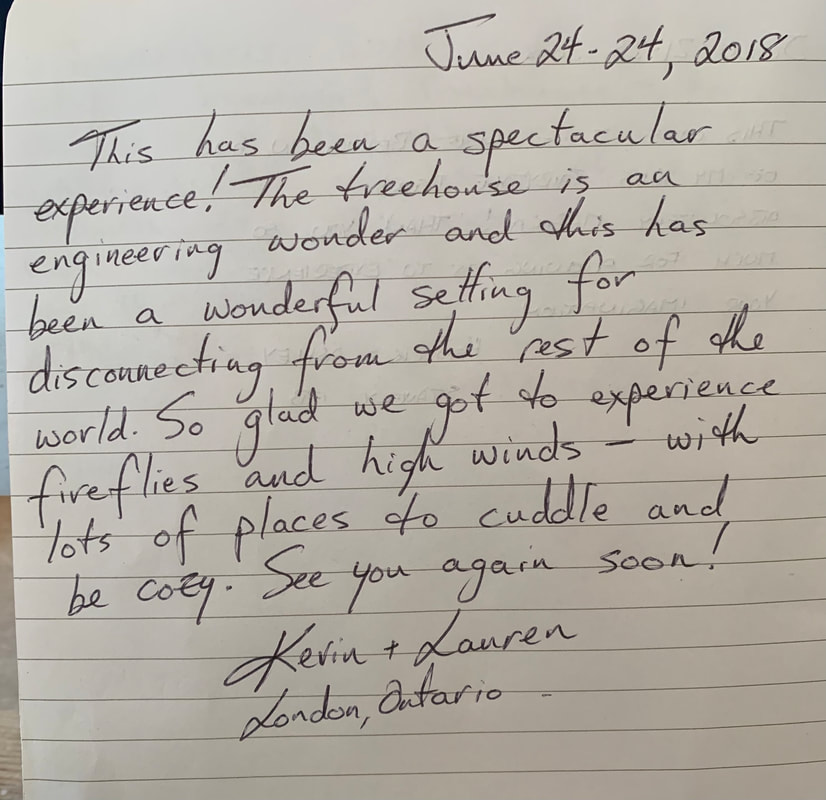 June 24-24, 2018
This has been a spectacular
experience! The treehouse is an
engineering wonder and this has
been a wonderful setting for
disconnecting from the rest of the
world. So glad we got to experience
fireflies and high winds – with
lots of places to cuddle and
be cozy. See you again soon!
Kevin + Lauren
London, Ontario -